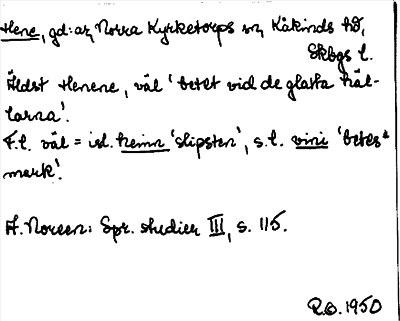 Hene, gd:ar, Norra Kyrketorps sn, Kåkinds hd,
Skbgs l.
Äldst Henene, väl 'betet vid de glatta häl-
larna'.
F.l. väl = isl. hein 'slipsten', s.l. vini 'betes-
mark'.
A. Noreen: Spr. studier III, s. 115.
R.O. 1950